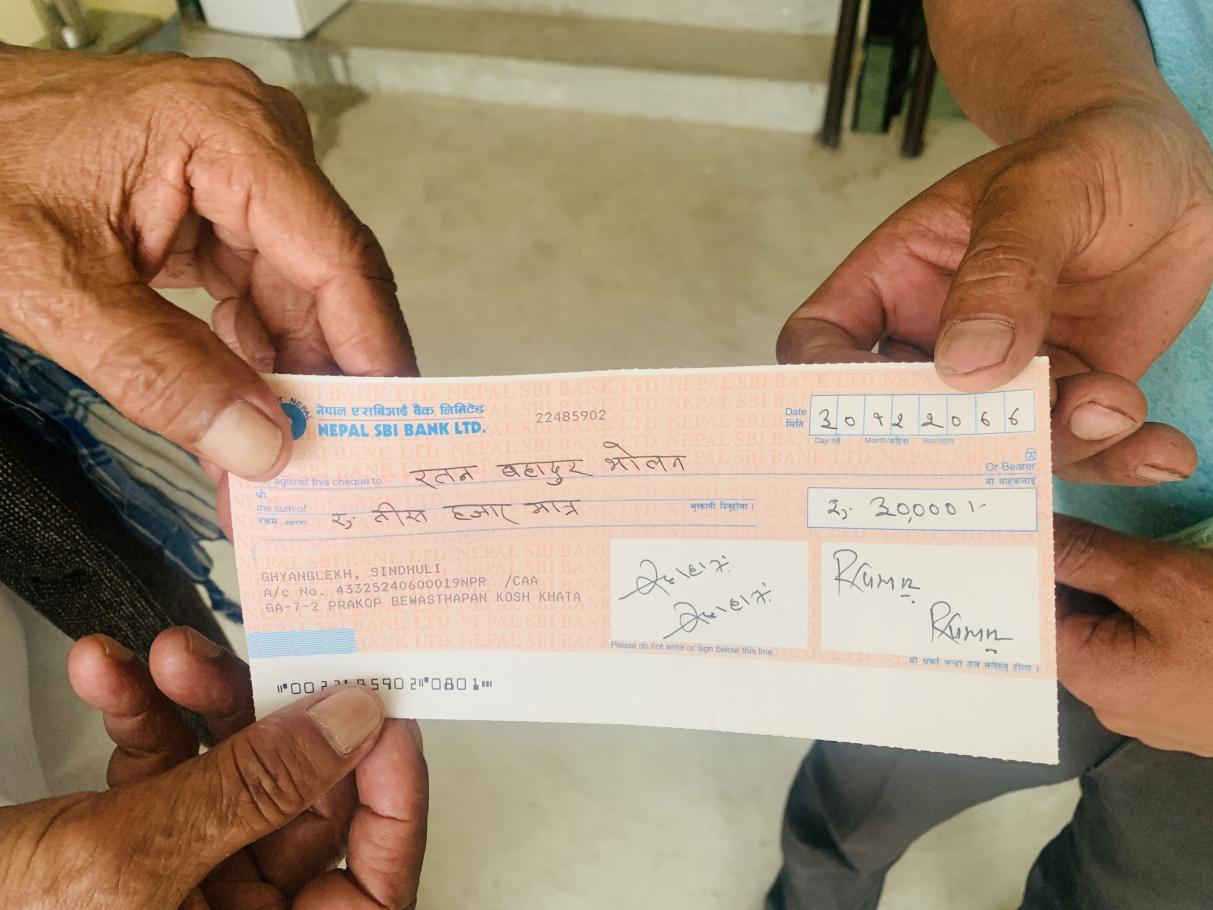 नेपाल एसबिआई बैंक लिमिटेड
NEPAL SBI BANK LTD.
22485902
Date मिति
३०१२२०६६
Day/गते Month/महिना Year/साल
against this cheque to रतन बहादुर भोलन
Or Bearer
श्री
वा वाहकलाई
the sum of रु. तीस हजार मात्र
रकम
भुक्तानी दिनुहोला ।
रु. ३०,०००।-
GHYANGLEKH, SINDHULI
A/c No. 43325240600019NPR /CAA
GA-7-2 PRAKOP BEWASTHAPAN KOSH KHATA
Please do not write or sign below this line
यो धर्का भन्दा तल नलेख्नु होला ।
5902⑈0801⑈